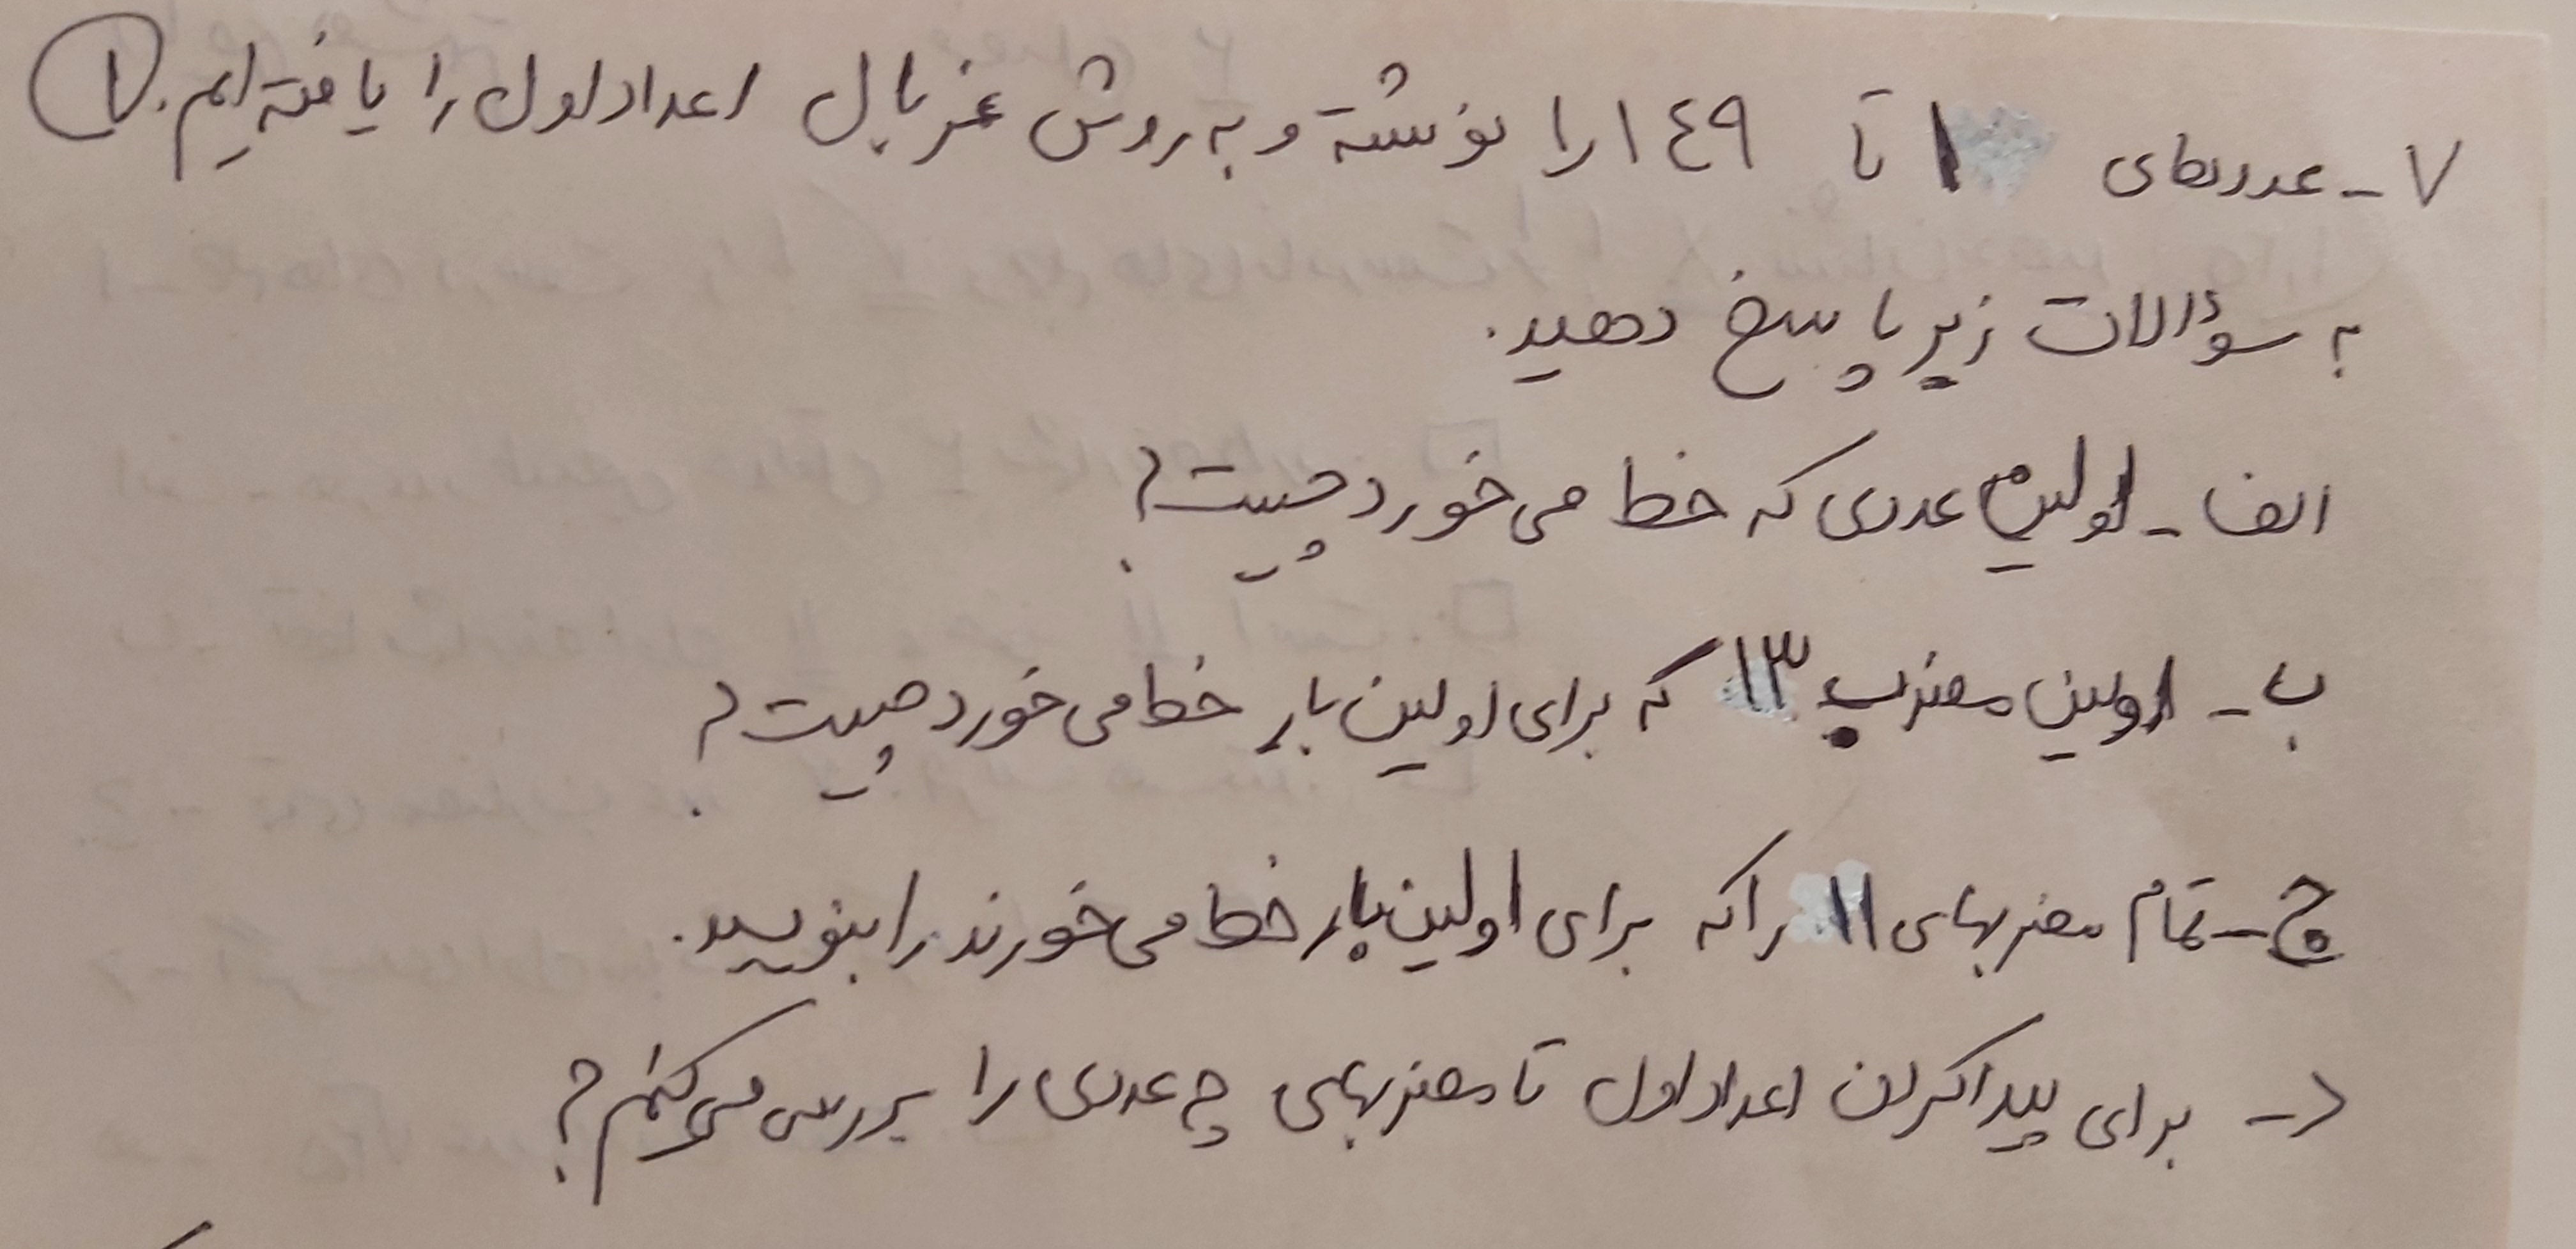 ۷- عددهای ۱ تا ۱۴۹ را نوشته و به روش غربال اعداد اول را یافته ایم. ۱
به سؤالات زیر پاسخ دهید.
الف - اولین عددی که خط می خورد چیست؟
ب - اولین مضرب ۱۳ که برای اولین بار خط می خورد چیست؟
ج - تمام مضربهای ۱۱ را که برای اولین بار خط می خورند را بنویسید.
د - برای پیدا کردن اعداد اول تا مضربهای چه عددی را بررسی می کنیم؟